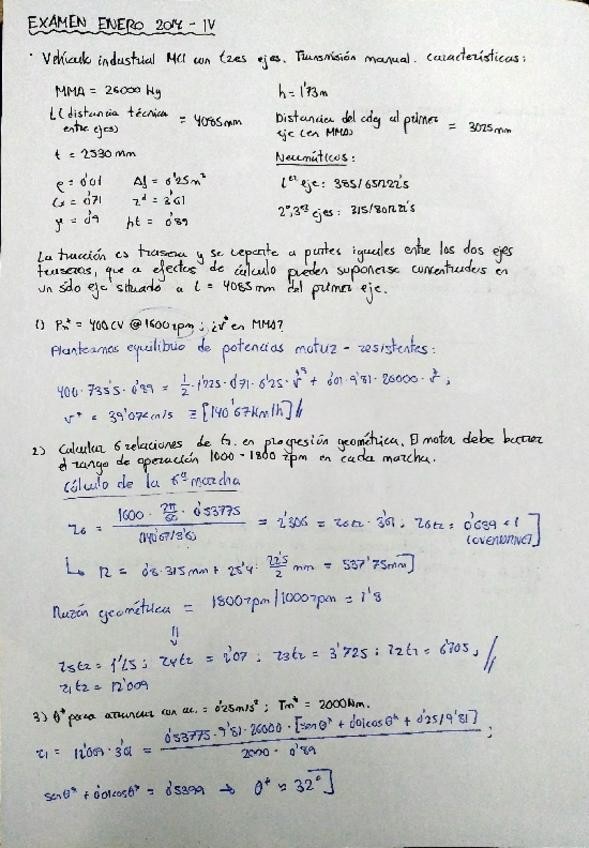 EXAMEN ENERO 2014 - IV
· Vehículo industrial MCI con tres ejes. Transmisión manual. Características:
MMA = 26000 Kg
h = 1'73m
L (distancia técnica entre ejes) = 4085mm
Distancia del cdg al primer eje (en MMA) = 3025mm
t = 2530 mm
Neumáticos:
ρ = 0'01 Af = 6'25m²
1er eje: 385/65R22'5
Cx = 0'71 rd = 3'61
2º, 3er ejes: 315/80R22'5
μ = 0'9 ht = 0'89
La tracción es trasera y se reparte a partes iguales entre los dos ejes
traseros, que a efectos de cálculo pueden suponerse concentrados en
un sólo eje situado a L = 4085mm del primer eje.
1) Pm* = 400CV @1600rpm; ¿v* en MMA?
Planteamos equilibrio de potencias motriz - resistentes:
400·735'5·0'89 = 1/2·1'225·0'71·6'25·v*³ + 0'01·9'81·26000·v*;
v* = 39'07m/s ≡ [140'67km/h]//
2) Calcular 6 relaciones de tr. en progresión geométrica. El motor debe barrer
el rango de operación 1000 - 1800 rpm en cada marcha.
Cálculo de la 6ª marcha
r6 = (1600 · 2π/60 · 0'53775) / (140'67/3'6) = 2'306 = r6tr · 3'61; r6tr = 0'639 < 1 (OVERDRIVE)]
↳ R = 0'8·315mm + 25'4 · 22'5/2 mm = 537'75mm]
Razón geométrica = 1800rpm/1000rpm = 1'8
⇓
r5tr = 1'15; r4tr = 2'07; r3tr = 3'725; r2tr = 6'705; //
r1tr = 12'069
3) θ* para arrancar con ac. = 0'25m/s²; Tm* = 2000Nm.
r1 = 12'069 · 3'61 = (0'53775·9'81·26000·[senθ* + 0'01cosθ* + 0'25/9'81]) / (2000 · 0'89);
senθ* + 0'01cosθ* = 0'5399 → θ* ≈ 32°]